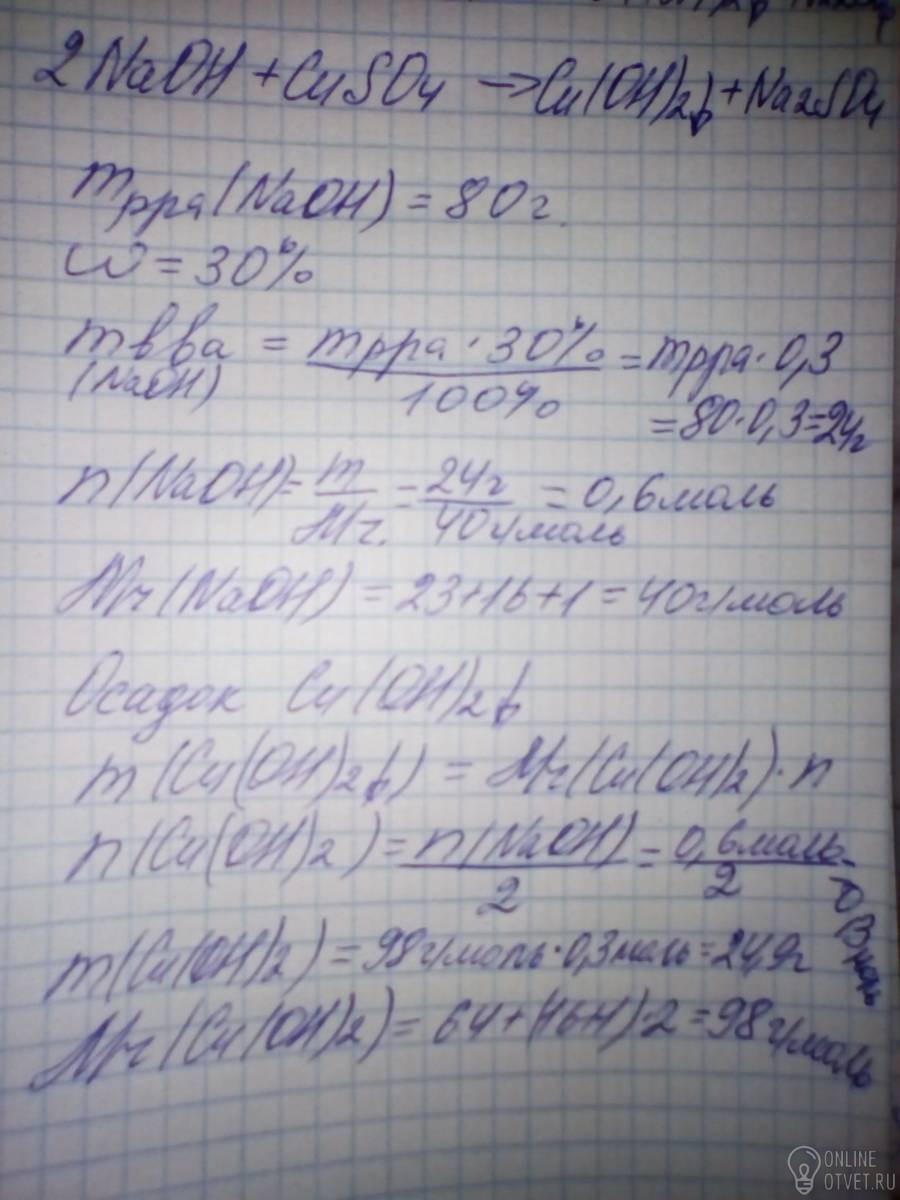 2NaOH + CuSO4 → Cu(OH)2↓ + Na2SO4
mрра(NaOH) = 80г.
ω = 30%
mвва (NaOH) = mрра · 30% / 100% = mрра · 0,3
= 80·0,3=24г
n(NaOH) = m / Mr. = 24г / 40г/моль = 0,6моль
Mr(NaOH) = 23+16+1 = 40г/моль
Осадок Cu(OH)2↓
m(Cu(OH)2↓) = Mr(Cu(OH)2)·n
n(Cu(OH)2) = n(NaOH) / 2 = 0,6моль / 2 = 0,3моль
m(Cu(OH)2) = 98г/моль·0,3моль=24,9г
Mr(Cu(OH)2) = 64+(16+1)·2 = 98г/моль
ONLINE
OTVET.RU